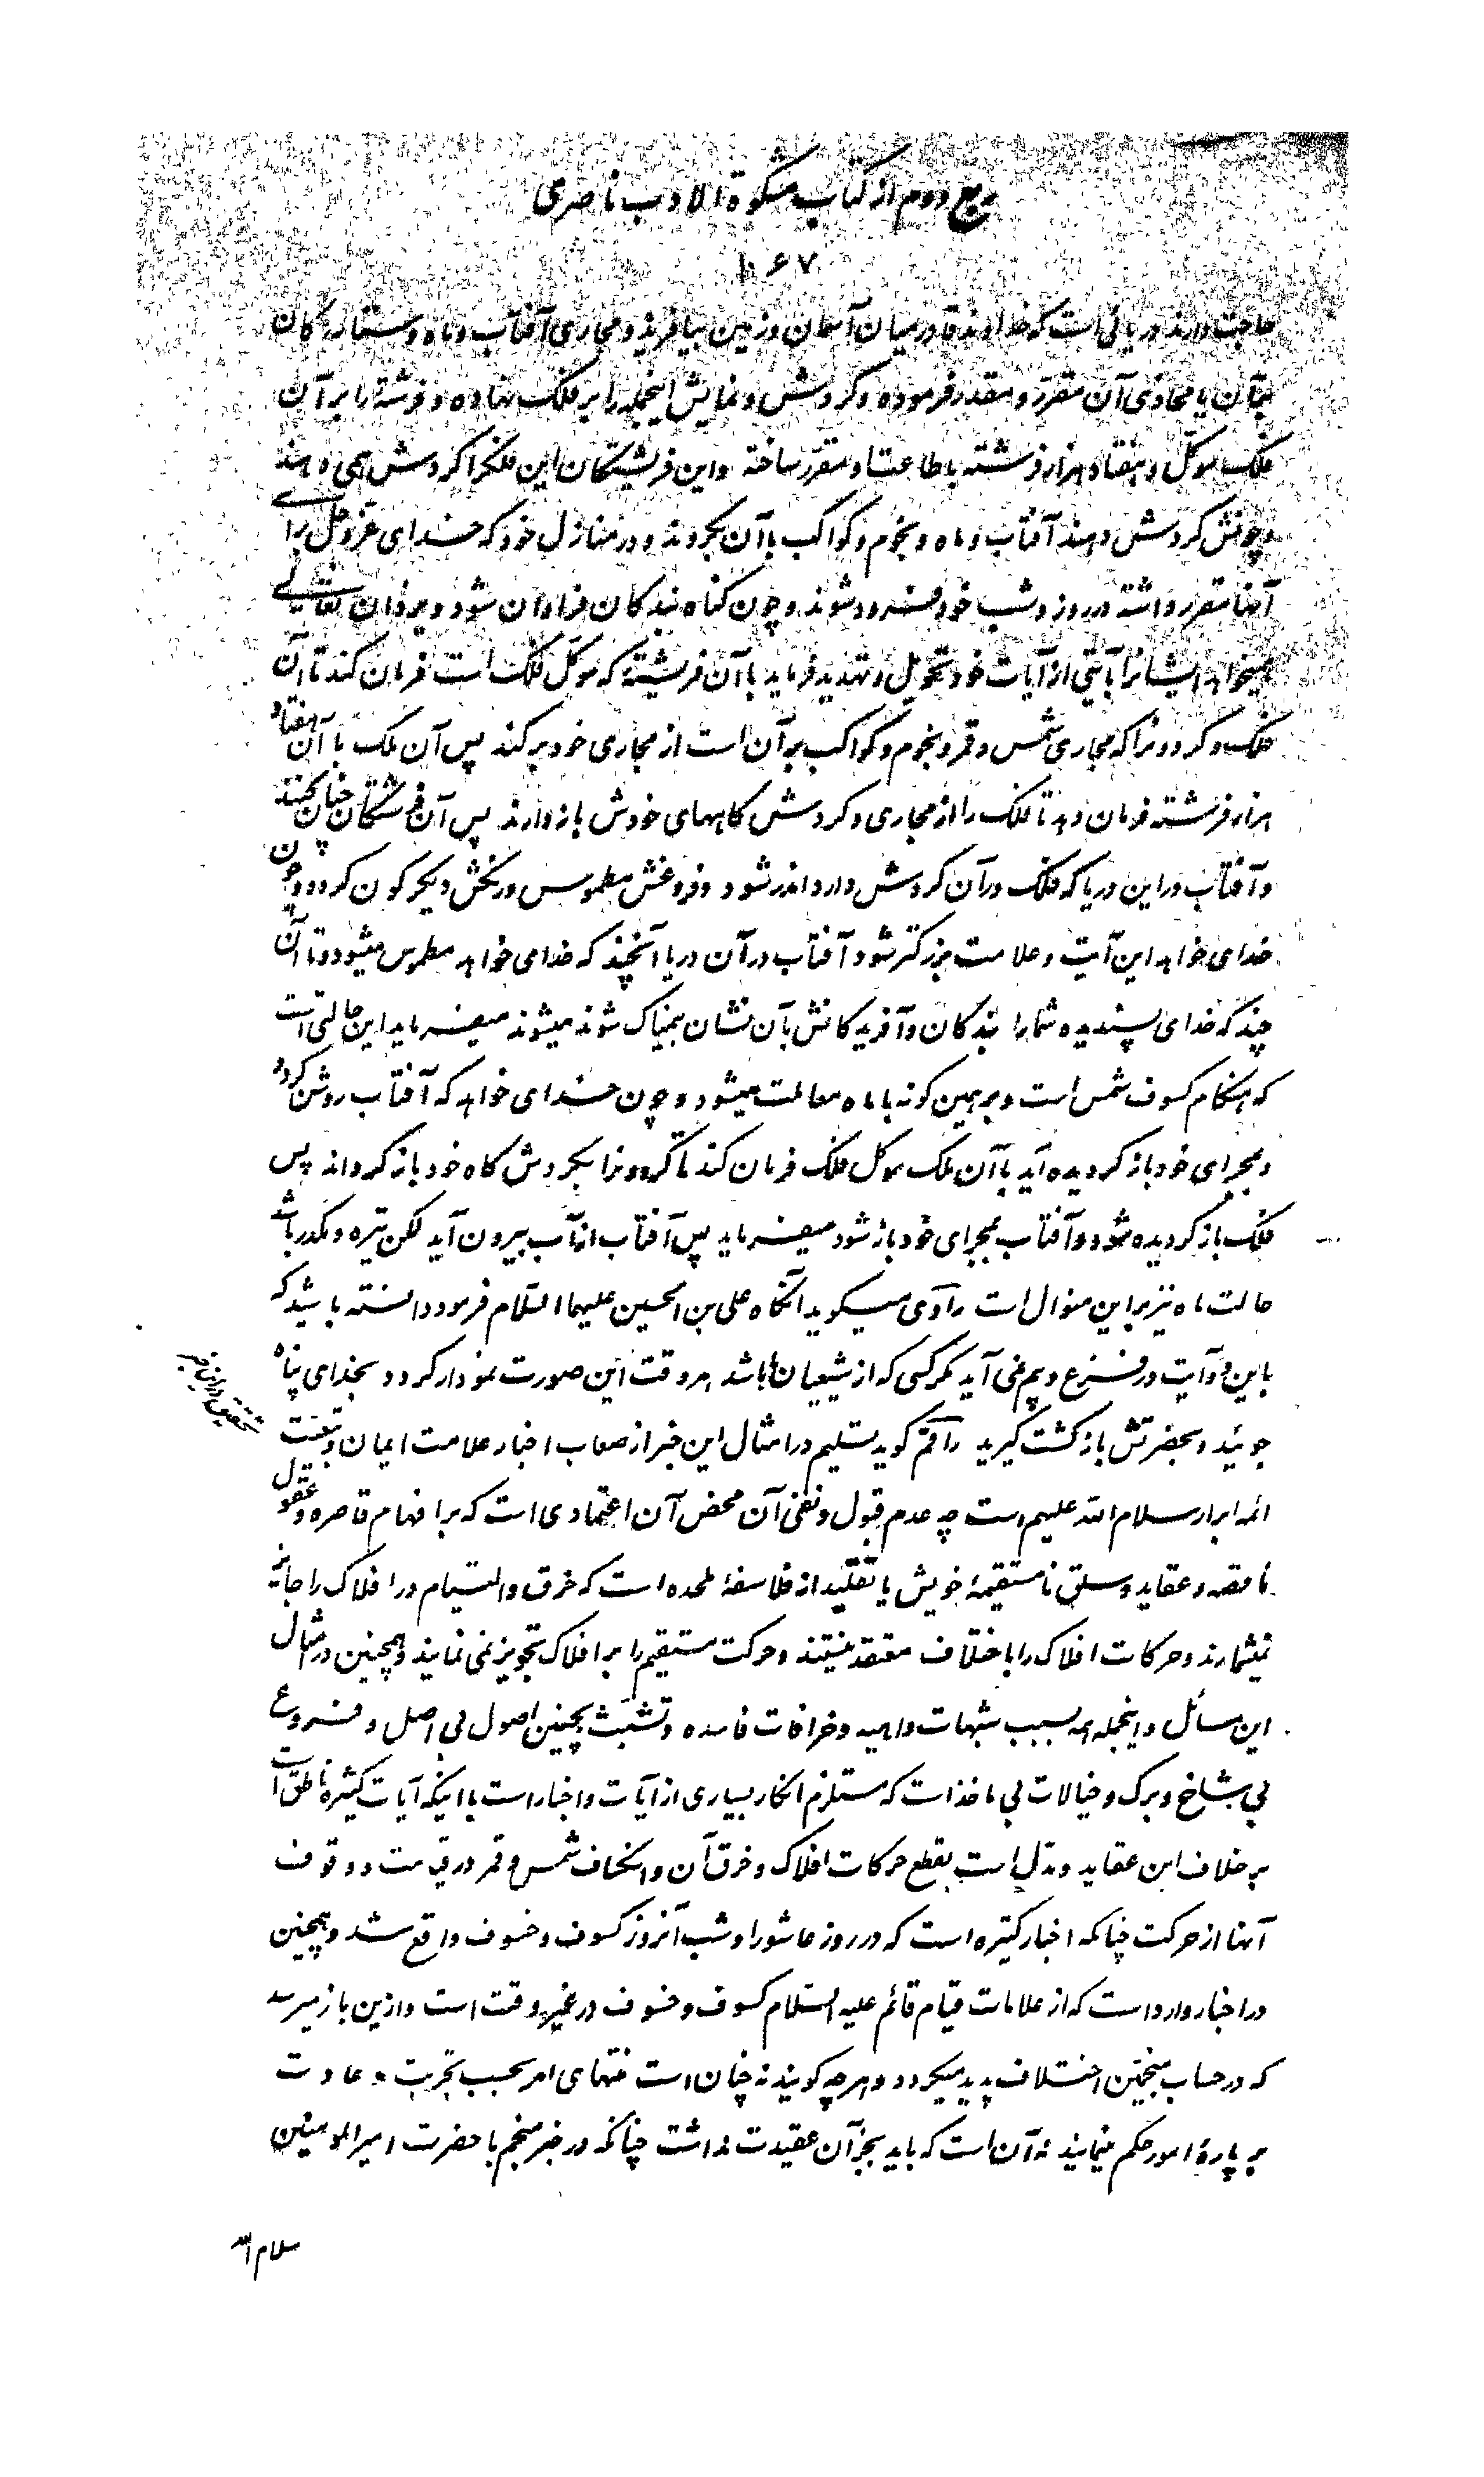 ربع دوم از کتاب مشکوة الادب ناصری
۱۰۶۷
حاجت دارند دریائی است که خداوند در میان آسمان و زمین بیافرید و مجاری آفتاب و ماه و ستارکان
با محاذی آن مقرر و مقدر فرموده و کردش و نمایش اینجمله را بر فلک نهاده و فرشتهٔ را بر آن
فلک موکل و هفتاد هزار فرشته باطاعت او مقرر ساخته و این فریشتکان این فلکرا کردش همی دهند
و چونش کردش دهند آفتاب و ماه و نجوم و کواکب با آن بکردند و در منازل خود که خدای عزوجل برای
آنها مقرر داشته در روز و شب خود فرود شوند و چون کناه بندکان فراوان شود و یزدان تعالی
میخواهد ایشانرا بآیتی از آیات خود تحویل و تهدید فرماید با آن فریشته که موکل فلک است فرمان کند تا آن
فلک و کردونرا که مجاری شمس و قمر و نجوم و کواکب بر آن است از مجاری خود بر کند پس آن ملک با آن هفتاد
هزار فرشته فرمان دهد تا فلک را از مجاری و کردش کاههای خودش باز دارند پس آن فرشتکان چنان کنند
و آفتاب در این دریا که فلک در آن کردش دارد اندر شود و فروغش مطموس و رنکش دیکر کون کردد و چون
خدای خواهد این آیت و علامت بزرکتر شود آفتاب در آن دریا آنچند که خدا می خواهد مطموس میشود و تا آن
چند که خدای پسندیده شمارد بندکان و آفریدکانش بآن نشان بیمناک شوند میشوند میفرماید این حالتی است
که هنکام کسوف شمس است و بر همین کونه با ماه معاملت میشود و چون خدای خواهد که آفتاب روشن کردد
و بمجرای خود باز کردیده آید با آن ملک موکل فلک فرمان کند تا کردونرا بکردش کاه خود باز کرداند پس
فلک باز کردیده شود و آفتاب بمجرای خود باز شود میفرماید پس آفتاب از آب بیرون آید لکن تیره و مکدر باشد
حالت ماه نیز بر این منوال است راوی میکوید آنکاه علی بن الحسین علیهما السلام فرمود دانسته باشید که
باین دو آیت در فزع و بیم نمی آید مکر کسی که از شیعیان ما باشد هر وقت این صورت نمودار کردد بخدای پناه
جوئید و بحضرتش باز کشت کیرید راقم کوید تسلیم در امثال این خبر از صعاب اخبار علامت ایمان و تبعیت
ائمه ابرار سلام الله علیهم است چه عدم قبول و نفی آن محض آن اعتمادی است که بر افهام قاصره و عقول
ناقصه و عقاید و سلق نامستقیمهٔ خویش یا تقلید از فلاسفهٔ ملحده است که خرق و التیام در افلاک را جایز
نمیشمارند و حرکات افلاک را باختلاف معتقد نیستند و حرکت مستقیم را بر افلاک تجویز نمی نمایند و همچنین در امثال
این مسائل و اینجمله همه بسبب شبهات واهیه و خرافات فاسده و تشبث بچنین اصول بی اصل و فروع
بی شاخ و برک و خیالات بی ماخذ است که مستلزم انکار بسیاری از آیات و اخبار است با اینکه آیات کثیره ناطق است
بر خلاف این عقاید و مدل است بقطع حرکات افلاک و خرق آن و انخساف شمس و قمر در قیامت و وقوف
آنها از حرکت چنانکه اخبار کثیره است که در روز عاشورا و شب آنروز کسوف و خسوف واقع شد و همچنین
در اخبار وارد است که از علامات قیام قائم علیه السلام کسوف و خسوف در غیر وقت است و ازین باز میرسد
که در حساب منجمین اختلاف پدید میکردد و هر چه کویند نه چنان است منتهای امر بحسب تجربت و عادت
بر پارهٔ امور حکم مینمایند نه آن است که باید بجز آن عقیدت نداشت چنانکه در خبر منجم با حضرت امیر المومنین
سلام الله
تحقیق در این خبر